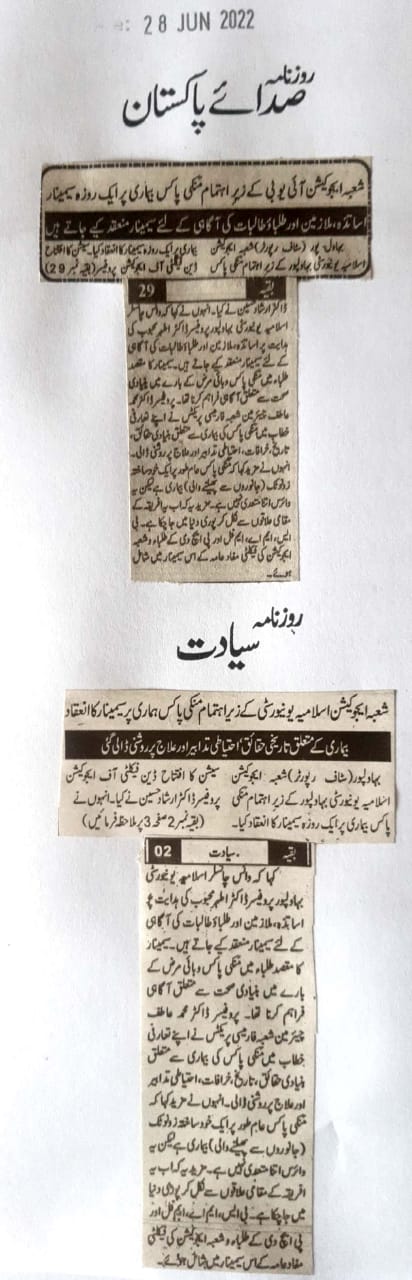 28 JUN 2022
روزنامہ
صدائے پاکستان
شعبہ ایجوکیشن آئی یو بی کے زیر اہتمام منکی پاکس بیماری پر ایک روزہ سیمینار
اساتذہ، ملازمین اور طلباؤ طالبات کی آگاہی کے لئے سیمینار منعقد کیے جاتے ہیں
بہاول پور (سٹاف رپورٹر) شعبہ ایجوکیشن
اسلامیہ یونیورسٹی بہاولپور کے زیر اہتمام منکی پاکس
بیماری پر ایک روزہ سیمینار کا انعقاد کیا۔ سیشن کا افتتاح
ڈین فیکلٹی آف ایجوکیشن پروفیسر (بقیہ نمبر 29)
بقیہ 29
ڈاکٹر ارشاد حسین نے کیا۔ انہوں نے کہا کہ وائس چانسلر
اسلامیہ یونیورسٹی بہاولپور پروفیسر ڈاکٹر اطہر محبوب کی
ہدایت پر اساتذہ، ملازمین اور طلباؤ طالبات کی آگاہی
کے لئے سیمینار منعقد کیے جاتے ہیں۔ سیمینار کا مقصد
طلباء میں منکی پاکس وبائی مرض کے بارے میں بنیادی
صحت سے متعلق آگاہی فراہم کرنا تھا۔ پروفیسر ڈاکٹر محمد
عاطف چیئرمین شعبہ فارمیسی پریکٹس نے اپنے تعارفی
خطاب میں منکی پاکس کی بیماری سے متعلق بنیادی حقائق،
تاریخ، خرافات، احتیاطی تدابیر اور علاج پر روشنی ڈالی۔
انہوں نے مزید کہا کہ منکی پاکس عام طور پر ایک خود ساختہ
زونوٹک (جانوروں سے پھیلنے والی) بیماری ہے لیکن یہ
وائرس اتنا متعدی نہیں ہے۔ مزید یہ کہ اب یہ افریقہ کے
مقامی علاقوں سے نکل کر پوری دنیا میں جا چکا ہے۔ بی
ایس، ایم اے، ایم فل اور پی ایچ ڈی کے طلباء و شعبہ
ایجوکیشن کی فیکلٹی مفاد عامہ کے اس سیمینار میں شامل
ہوئے۔
روزنامہ
سیادت
شعبہ ایجوکیشن اسلامیہ یونیورسٹی کے زیر اہتمام منکی پاکس بیماری پر سیمینار کا انعقاد
بیماری کے متعلق تاریخی حقائق احتیاطی تدابیر اور علاج پر روشنی ڈالی گئی
بہاولپور (سٹاف رپورٹر) شعبہ ایجوکیشن
اسلامیہ یونیورسٹی بہاولپور کے زیر اہتمام منکی
پاکس بیماری پر ایک روزہ سیمینار کا انعقاد کیا۔
سیشن کا افتتاح ڈین فیکلٹی آف ایجوکیشن
پروفیسر ڈاکٹر ارشاد حسین نے کیا۔ انہوں نے
(بقیہ نمبر 2 صفحہ 3 پر ملاحظہ فرمائیں)
بقیہ سیادت 02
کہا کہ وائس چانسلر اسلامیہ یونیورسٹی
بہاولپور پروفیسر ڈاکٹر اطہر محبوب کی ہدایت پر
اساتذہ، ملازمین اور طلباؤ طالبات کی آگاہی
کے لئے سیمینار منعقد کیے جاتے ہیں۔ سیمینار
کا مقصد طلباء میں منکی پاکس وبائی مرض کے
بارے میں بنیادی صحت سے متعلق آگاہی
فراہم کرنا تھا۔ پروفیسر ڈاکٹر محمد عاطف
چیئرمین شعبہ فارمیسی پریکٹس نے اپنے تعارفی
خطاب میں منکی پاکس کی بیماری سے متعلق
بنیادی حقائق، تاریخ، خرافات، احتیاطی تدابیر
اور علاج پر روشنی ڈالی۔ انہوں نے مزید کہا کہ
منکی پاکس عام طور پر ایک خود ساختہ زونوٹک
(جانوروں سے پھیلنے والی) بیماری ہے لیکن یہ
وائرس اتنا متعدی نہیں ہے۔ مزید یہ کہ اب یہ
افریقہ کے مقامی علاقوں سے نکل کر پوری دنیا
میں جا چکا ہے۔ بی ایس، ایم اے، ایم فل اور
پی ایچ ڈی کے طلباء و شعبہ ایجوکیشن کی فیکلٹی
مفاد عامہ کے اس سیمینار میں شامل ہوئے۔